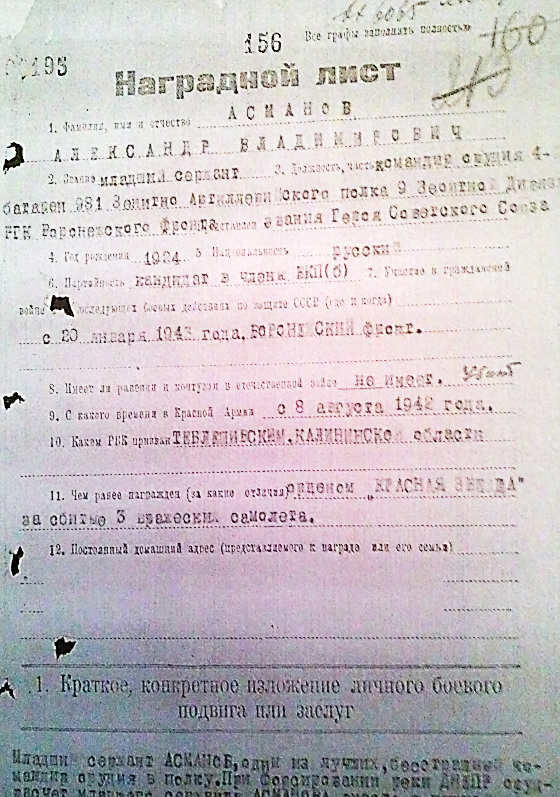 156 Все графы заполнять полностью 160
195
213
Наградной лист
1. Фамилия, имя и отчество АСМАНОВ
АЛЕКСАНДР ВЛАДИМИРОВИЧ
2. Звание младший сержант 3. Должность, часть командир орудия 4-
батареи 981 Зенитно Артиллерийского полка 9 Зенитной Дивизи
РГК Воронежского Фронта Представлен звания Героя Советского Союза
4. Год рождения 1924 5 Национальность русский
6. Партийность кандидат в члена ВКП(б) 7. Участие в гражданской
войне последующих боевых действиях по защите СССР (где и когда)
с 20 января 1943 года, ВОРОНЕЖСКИЙ фронт.
8. Имеет ли ранения и контузии в отечественной войне не имеет. Убит
9. С какого времени в Красной Армии с 8 августа 1942 года.
10. Каким РВК призван ТЕБЛЕШСКИМ, КАЛИНИНСКОЙ области
11. Чем ранее награжден (за какие отличия) орденом „КРАСНАЯ ЗВЕЗДА"
за сбитые 3 вражеских самолета.
12. Постоянный домашний адрес (представляемого к награде или его семьи)
1. Краткое, конкретное изложение личного боевого
подвига или заслуг
Младший сержант АСМАНОВ, один из лучших, бесстрашней ко-
мандир орудия в полку. При форсировании реки ДНЕПР оруд-